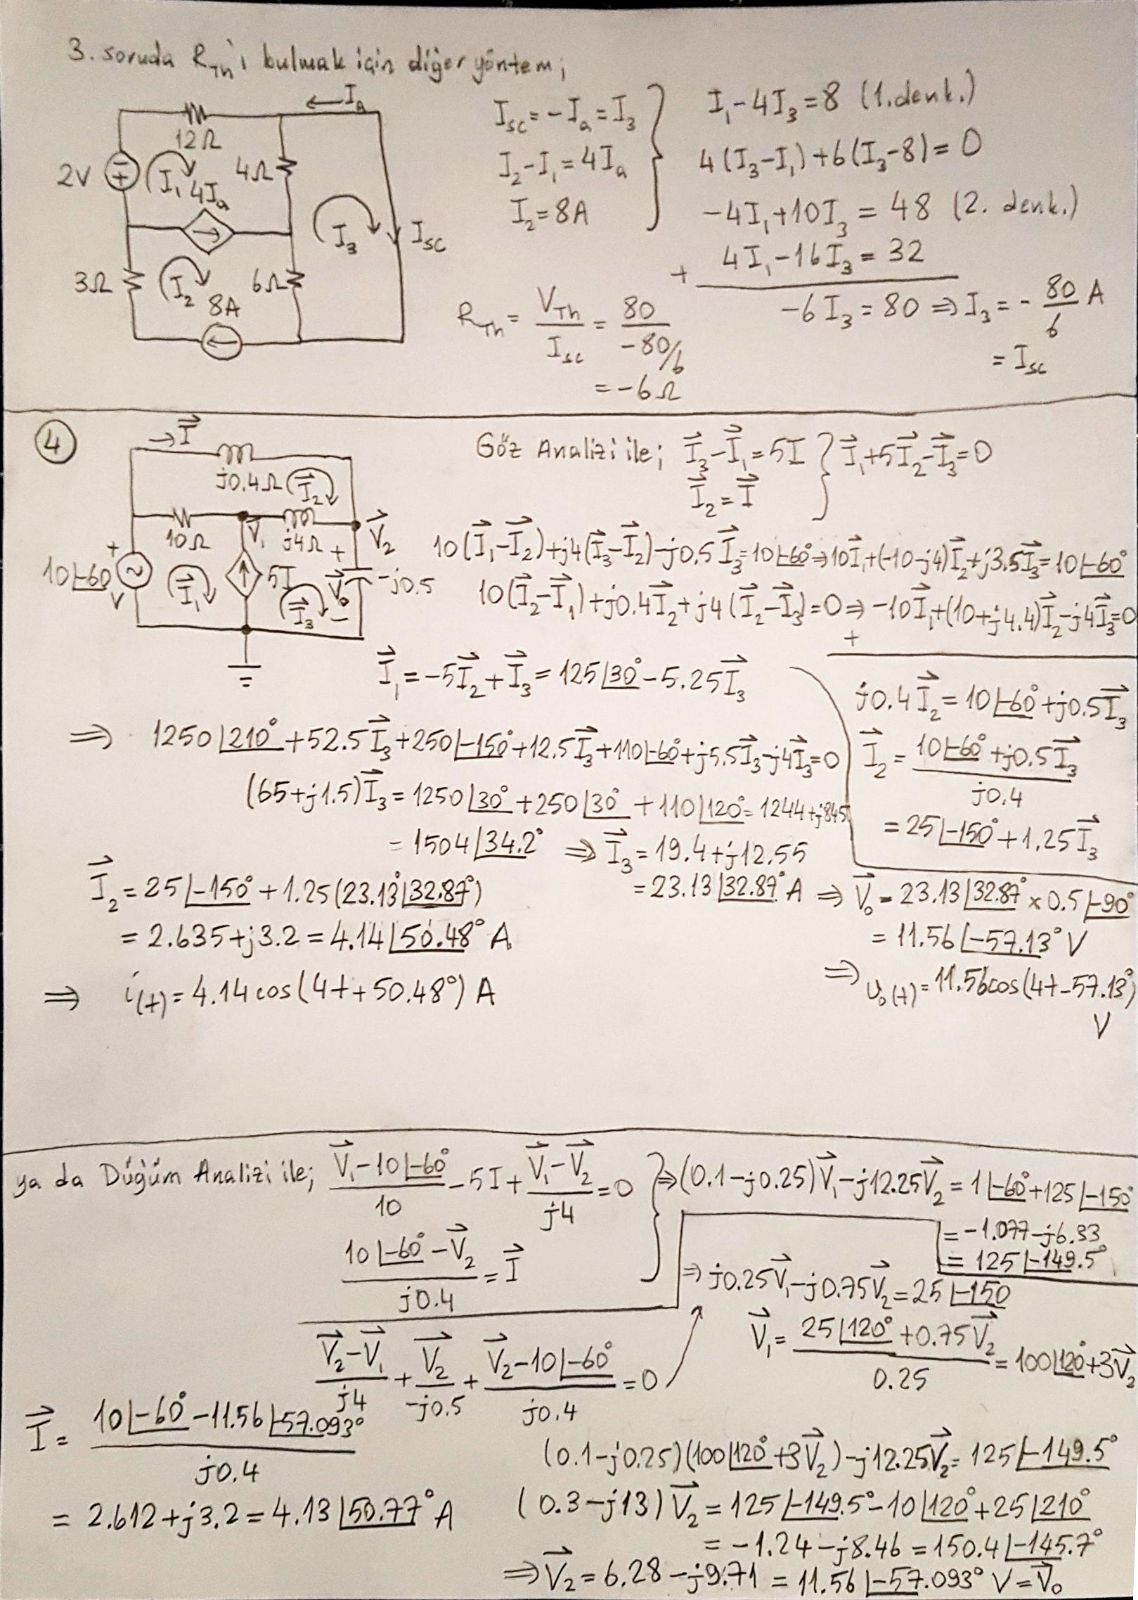 3. soruda R_Th'ı bulmak için diğer yöntem;
I_a
12Ω
2V
I₁
4I_a
4Ω
I₃
I_sc
3Ω
I₂
6Ω
8A
I_sc = -I_a = I₃
I₂-I₁ = 4I_a
I₂ = 8A
I₁-4I₃ = 8 (1. denk.)
4(I₃-I₁)+6(I₃-8) = 0
-4I₁+10I₃ = 48 (2. denk.)
+ 4I₁-16I₃ = 32
-6I₃ = 80 ⇒ I₃ = -80/6 A
= I_sc
R_Th = V_Th/I_sc = 80/(-80/6)
= -6Ω
4
I⃗
j0.4Ω
I⃗₂
10Ω
V⃗₁
j4Ω
V⃗₂
10∠-60° V
+
I⃗₁
5I
I⃗₃
+
V⃗₀
-
-j0.5
Göz Analizi ile; I⃗₃-I⃗₁ = 5I
I⃗₂ = I⃗
I⃗₁+5I⃗₂-I⃗₃ = 0
10(I⃗₁-I⃗₂)+j4(I⃗₃-I⃗₂)-j0.5I⃗₃ = 10∠-60° ⇒ 10I⃗₁+(-10-j4)I⃗₂+j3.5I⃗₃ = 10∠-60°
10(I⃗₂-I⃗₁)+j0.4I⃗₂+j4(I⃗₂-I⃗₃) = 0 ⇒ -10I⃗₁+(10+j4.4)I⃗₂-j4I⃗₃ = 0
+
j0.4I⃗₂ = 10∠-60°+j0.5I⃗₃
I⃗₂ = (10∠-60°+j0.5I⃗₃)/j0.4
= 25∠-150°+1.25I⃗₃
I⃗₁ = -5I⃗₂+I⃗₃ = 125∠30°-5.25I⃗₃
⇒ 1250∠210°+52.5I⃗₃+250∠-150°+12.5I⃗₃+110∠-60°+j5.5I⃗₃-j4I⃗₃ = 0
(65+j1.5)I⃗₃ = 1250∠30°+250∠30°+110∠120° = 1244+j845
= 1504∠34.2° ⇒ I⃗₃ = 19.4+j12.55
= 23.13∠32.87° A ⇒ V⃗₀ = 23.13∠32.87° × 0.5∠-90°
= 11.56∠-57.13° V
⇒ v₀(t) = 11.56cos(4t-57.13°) V
I⃗₂ = 25∠-150°+1.25(23.13∠32.87°)
= 2.635+j3.2 = 4.14∠50.48° A
⇒ i(t) = 4.14cos(4t+50.48°) A
ya da Düğüm Analizi ile; (V⃗₁-10∠-60°)/10 -5I+(V⃗₁-V⃗₂)/j4 = 0
(10∠-60°-V⃗₂)/j0.4 = I⃗
⇒ (0.1-j0.25)V⃗₁-j12.25V⃗₂ = 1∠-60°+125∠-150°
= -1.077-j6.33
= 125∠-149.5°
(V⃗₂-V⃗₁)/j4+V⃗₂/-j0.5+(V⃗₂-10∠-60°)/j0.4 = 0
⇒ j0.25V⃗₁-j0.75V⃗₂ = 25∠-150
V⃗₁ = (25∠120°+0.75V⃗₂)/0.25 = 100∠120°+3V⃗₂
(0.1-j0.25)(100∠120°+3V⃗₂)-j12.25V⃗₂ = 125∠-149.5°
(0.3-j13)V⃗₂ = 125∠-149.5°-10∠120°+25∠210°
= -1.24-j8.46 = 150.4∠-145.7°
⇒ V⃗₂ = 6.28-j9.71 = 11.56∠-57.093° V = V⃗₀
I⃗ = (10∠-60°-11.56∠-57.093°)/j0.4
= 2.612+j3.2 = 4.13∠50.77° A